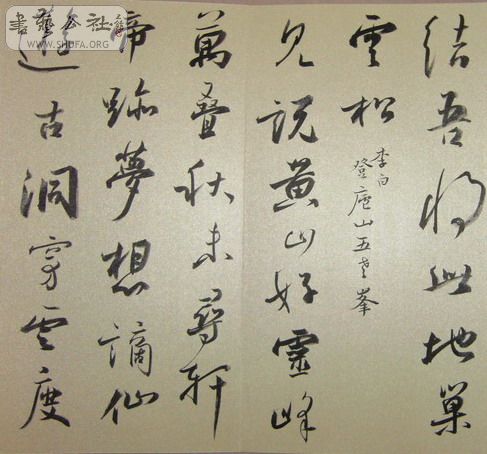 結吾将此地巢
雲松
李白
登庐山五老峯
見説黄山好靈峰
萬叠秋未尋軒
帝跡夢想謫仙
遊古洞穿雲度
書藝公社
WWW.SHUFA.ORG